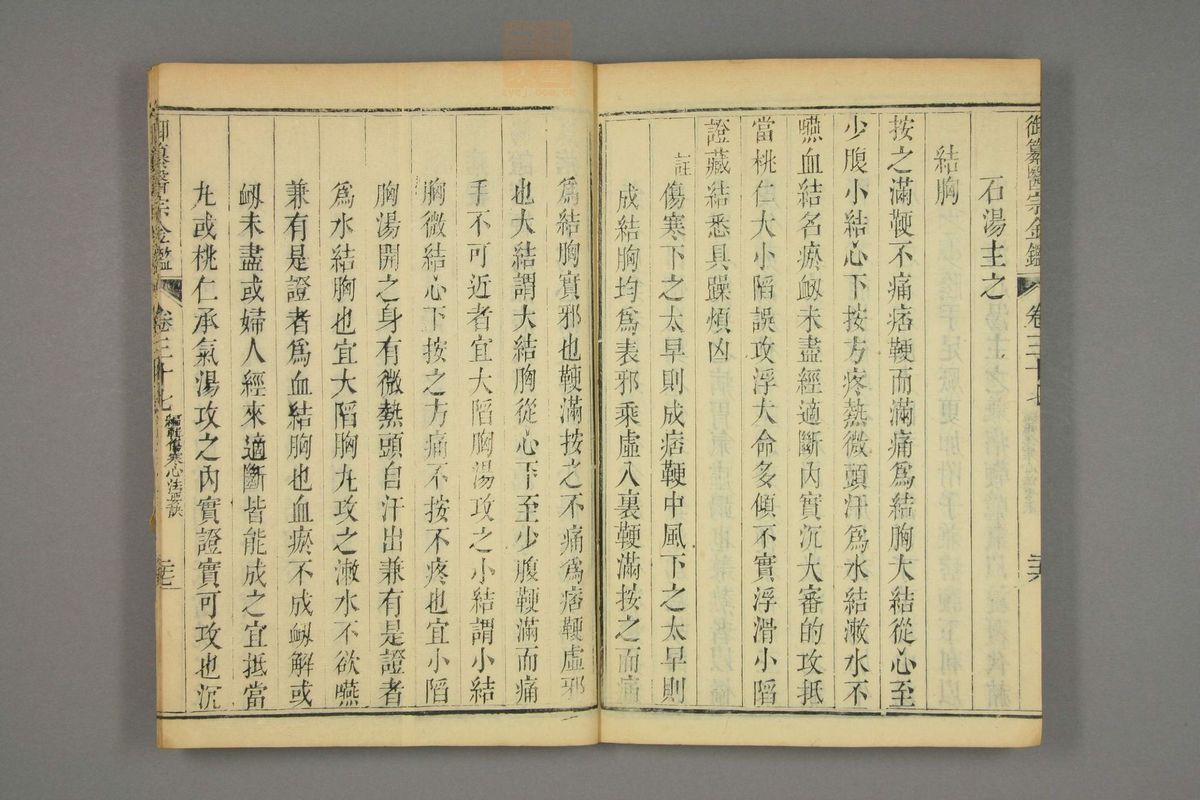 御纂醫宗金鑑 卷三十七
石湯主之
結胸
按之滿鞕不痛痞鞕而滿痛爲結胸大結從心至
少腹小結心下按方疼熱微頭汗爲水結漱水不
嚥血結名瘀衂未盡經適斷內實沉大審的攻抵
當桃仁大小陷誤攻浮大命多傾不實浮滑小陷
證藏結悉具躁煩凶
註
傷寒下之太早則成痞鞕中風下之太早則
成結胸均爲表邪乘虛入裏鞕滿按之而痛
爲結胸實邪也鞕滿按之不痛爲痞鞕虛邪
也大結謂大結胸從心下至少腹鞕滿而痛
手不可近者宜大陷胸湯攻之小結謂小結
胸微結心下按之方痛不按不疼也宜小陷
胸湯開之身有微熱頭自汗出兼有是證者
爲水結胸也宜大陷胸丸攻之漱水不欲嚥
兼有是證者爲血結胸也血瘀不成衂解或
衂未盡或婦人經來適斷皆能成之宜抵當
丸或桃仁承氣湯攻之內實證實可攻也沉
御纂醫宗金鑑 卷三十七 編輯傷寒心法要訣